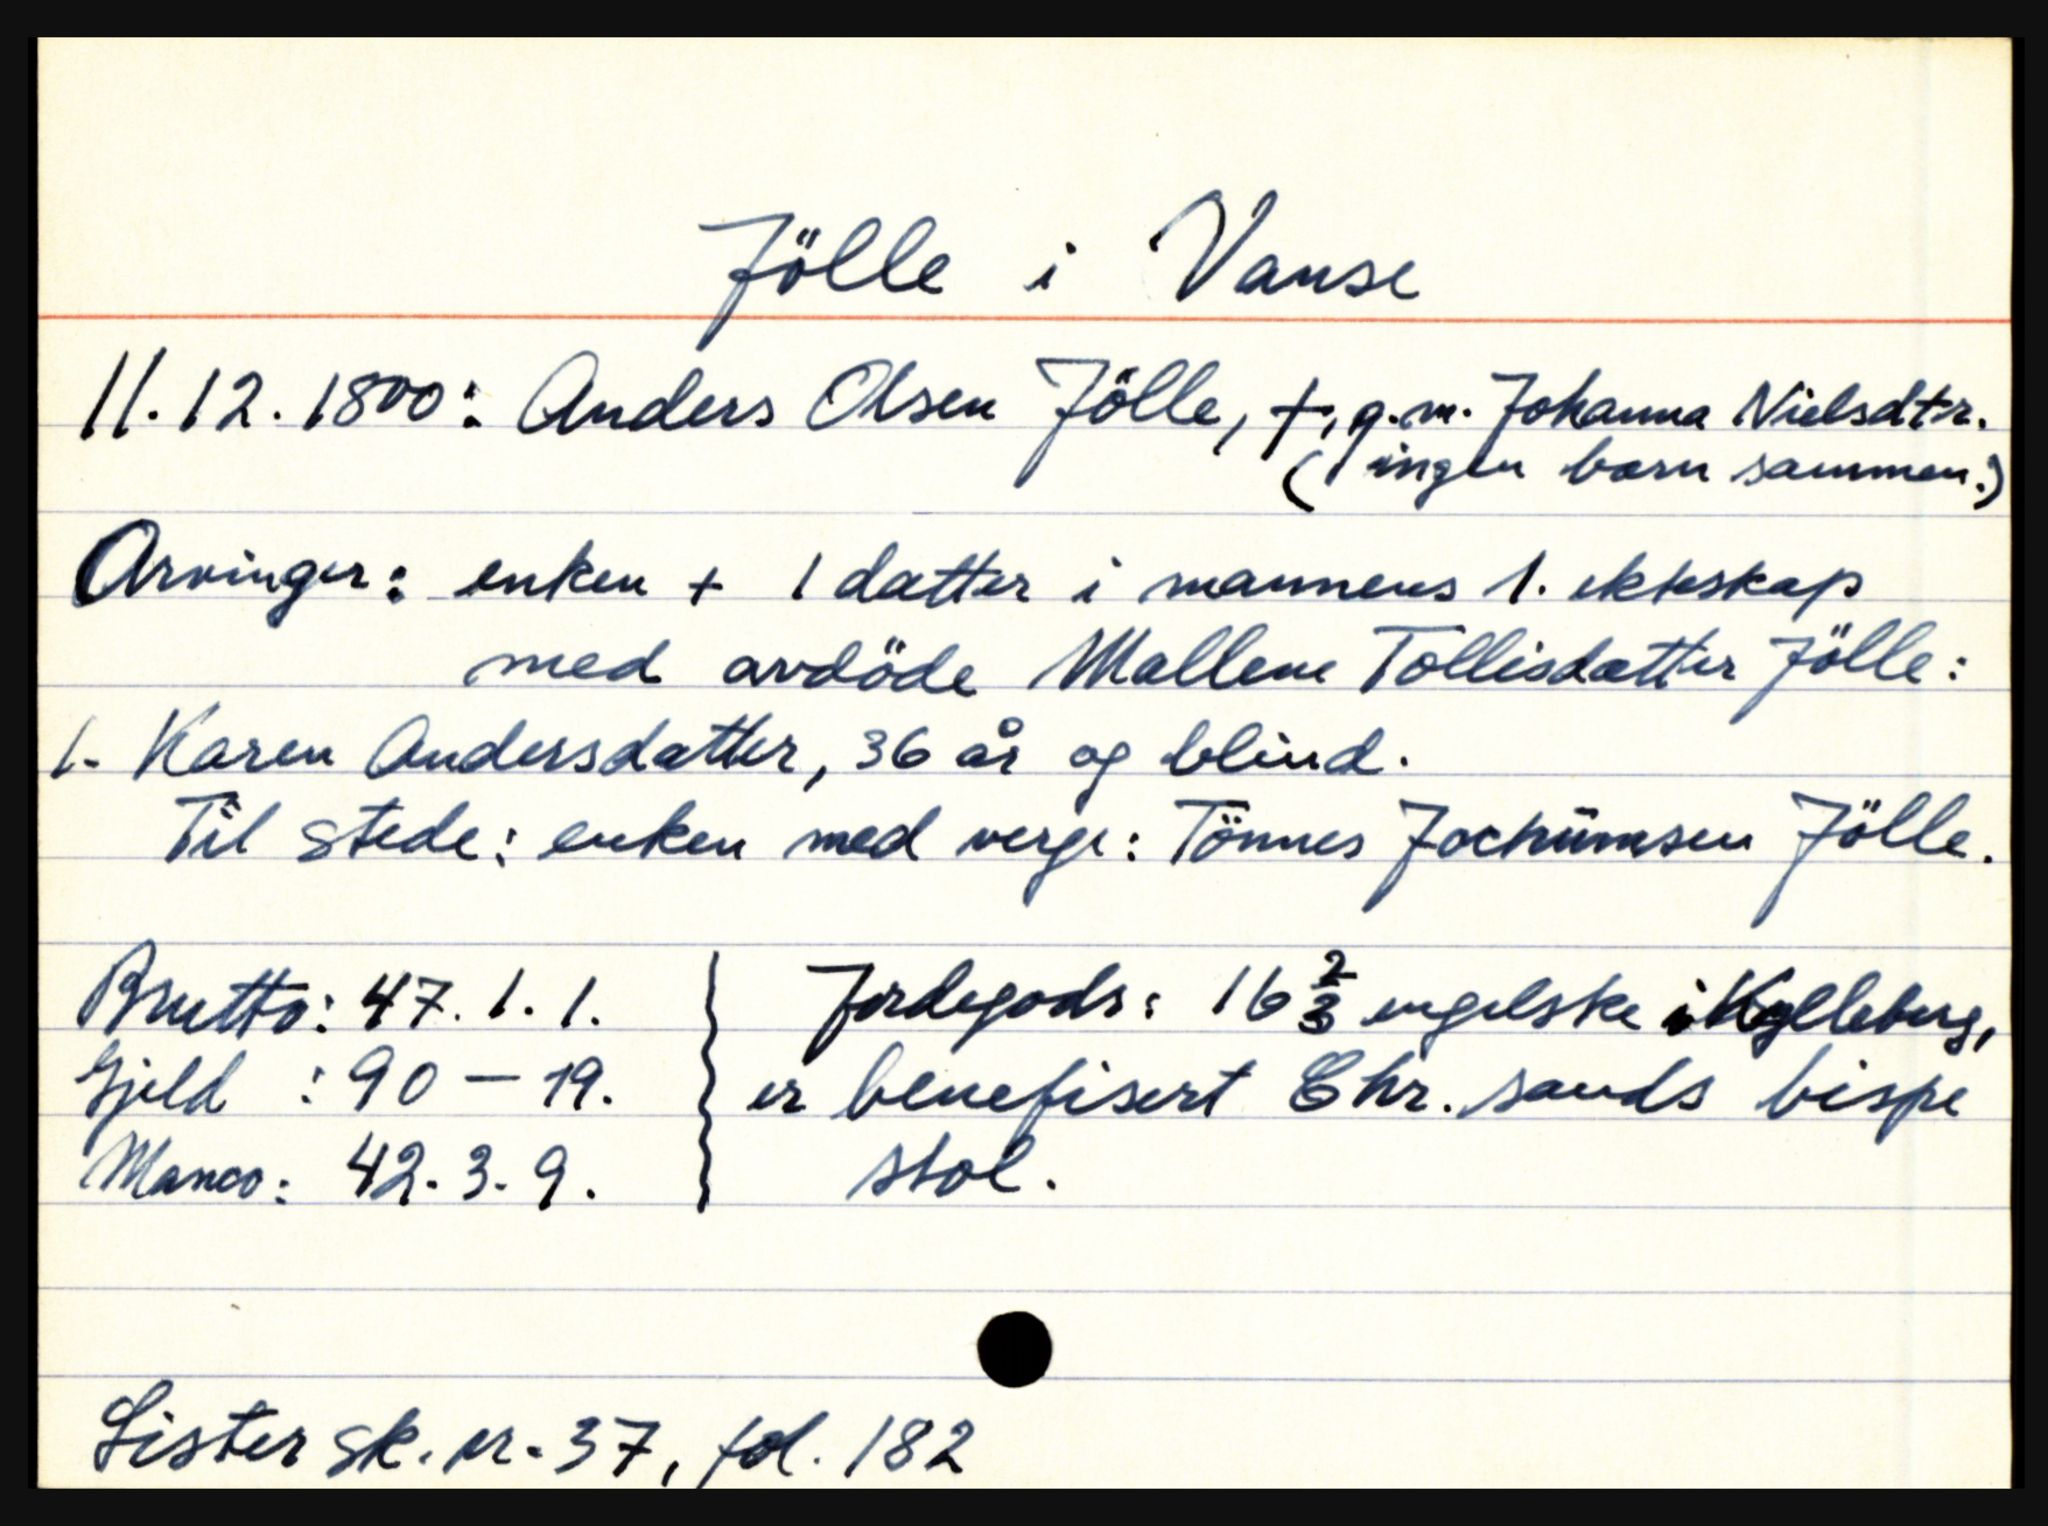 Jölle i Vanse
11.12.1800: Anders Olsen Jölle, †, g.m. Johanna Nielsdtr.
(ingen barn sammen.)
Arvinger: enken + 1 datter i mannens 1. ekteskap
med avdöde Mallene Tollisdatter Jölle:
1. Karen Andersdatter, 36 år og blind.
Til stede: enken med verge: Tönnes Jochumsen Jölle.
Brutto: 47. 1. 1.
Gjeld : 90 — 19.
Manco: 42. 3. 9.
Jordegods: 16 2/3 engelske i Kylleberg,
er benefisert Chr.sands bispe
stol.
Lister sk. nr. 37, fol. 182